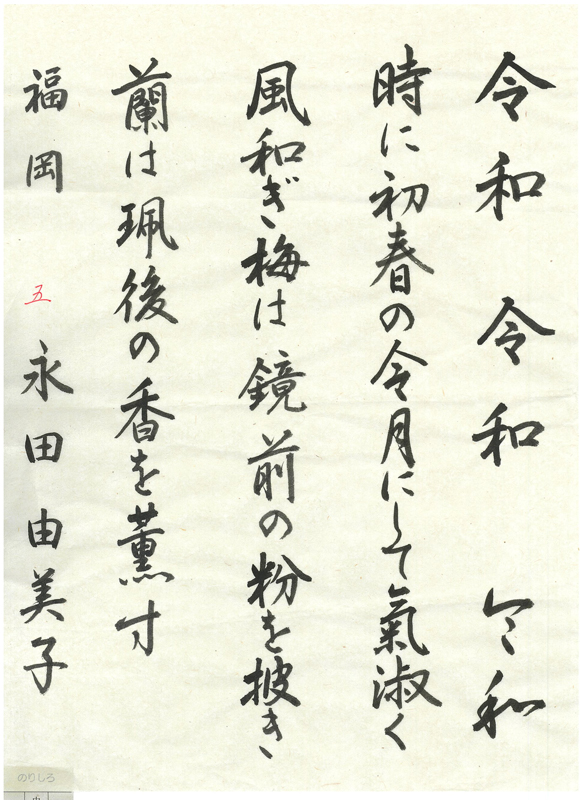 令和 令和 令和
時に初春の令月にして氣淑く
風和ぎ梅は鏡前の粉を披き
蘭は珮後の香を薫寸
福岡 五 永田由美子
のりしろ